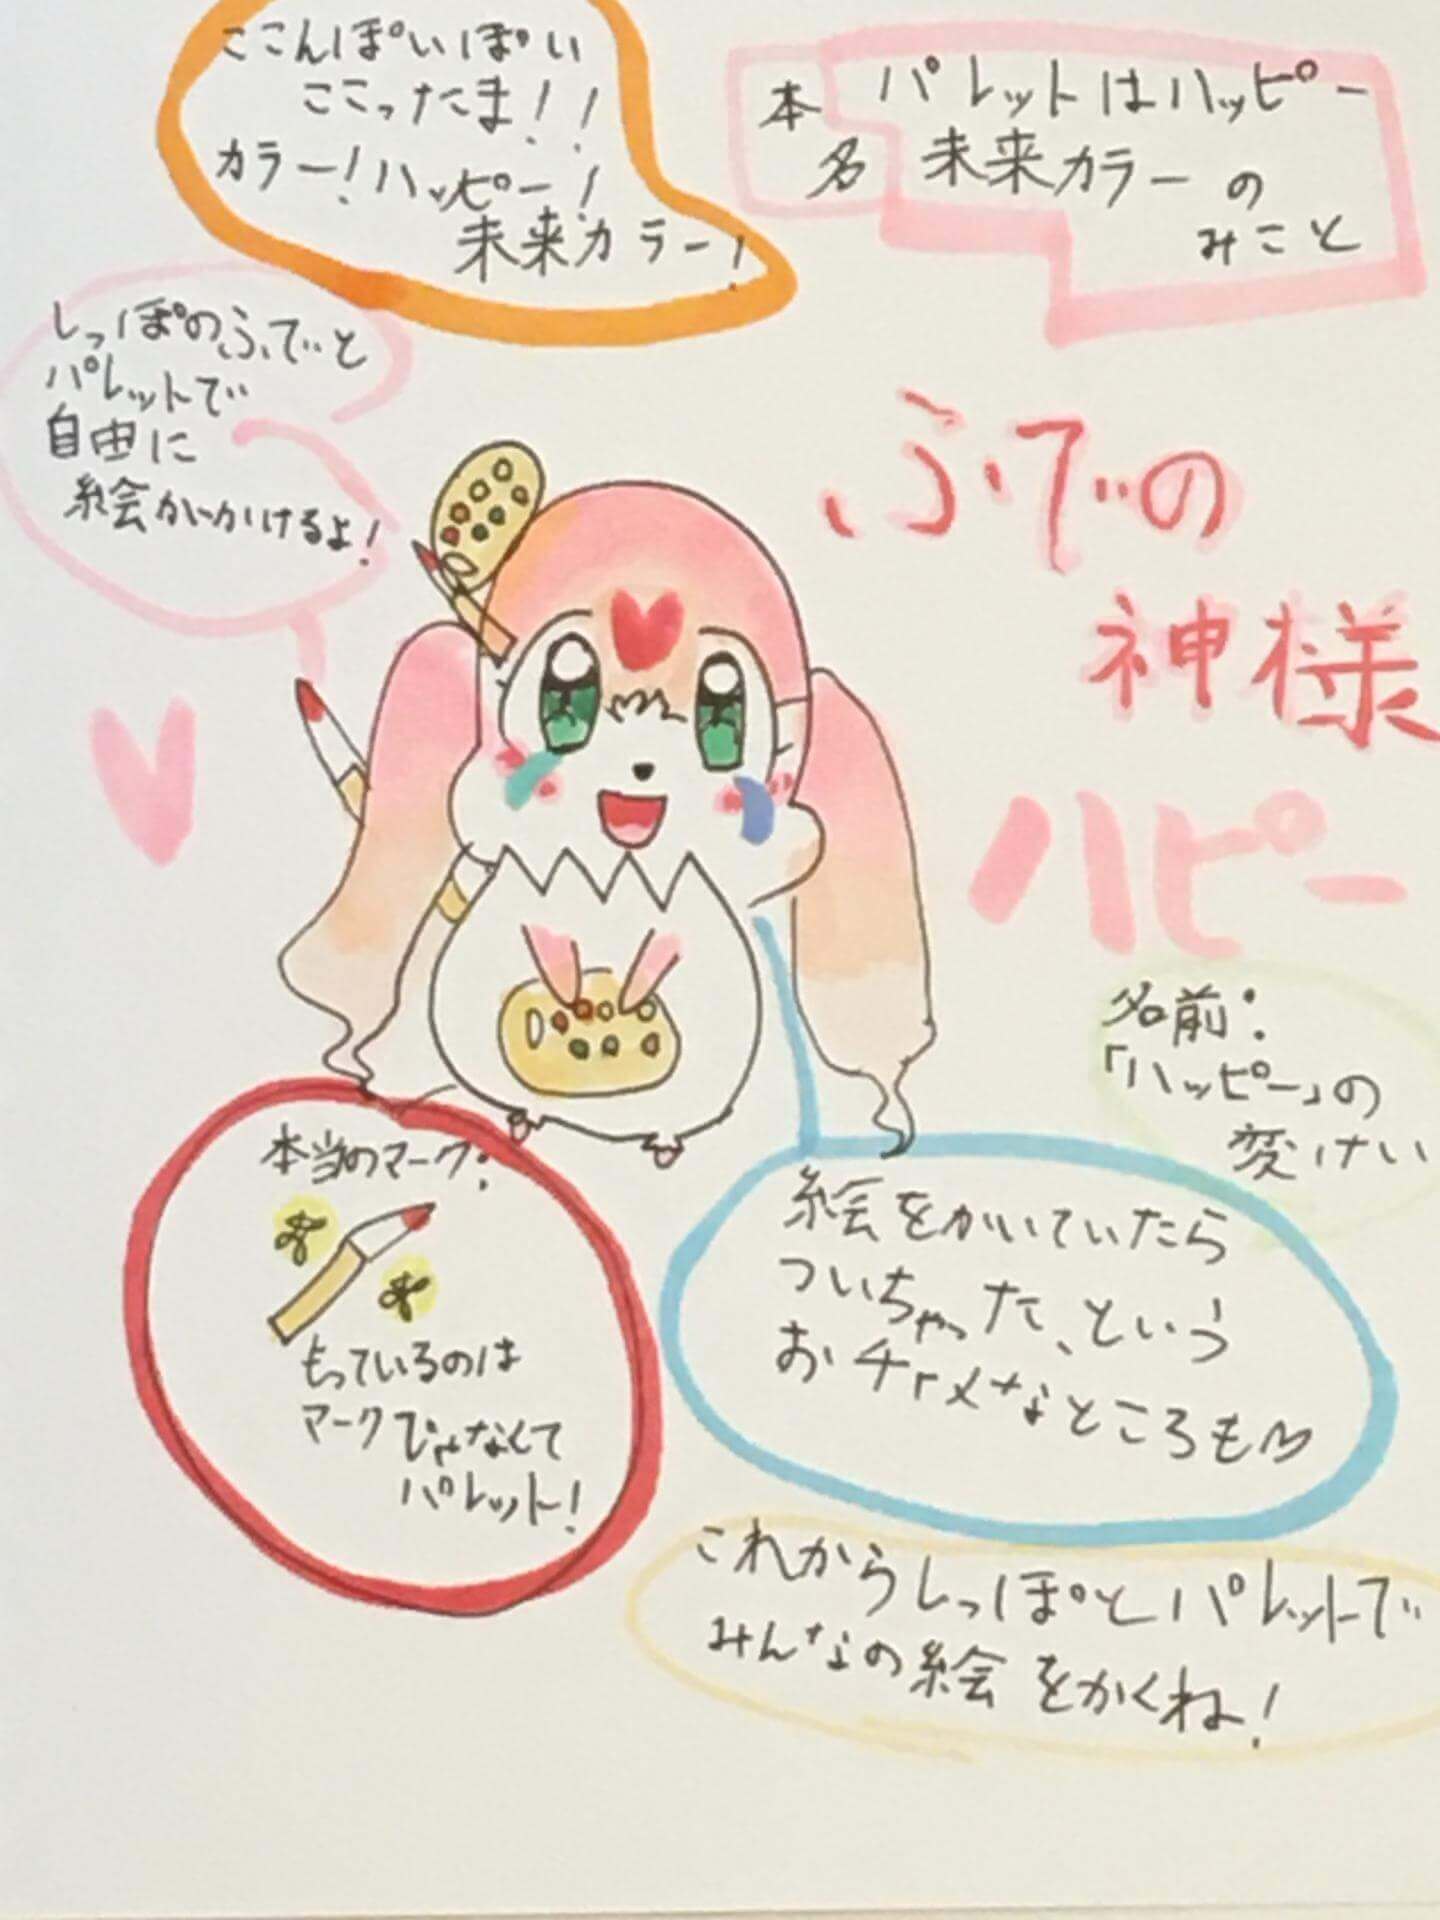 ここんぽいぽい
ここったま!!
カラー!ハッピー!
未来カラー!
本名
パレットはハッピー
未来カラーの
みこと
しっぽのふでと
パレットで
自由に
絵がかけるよ!
ふでの
神様
ハピー
名前:
「ハッピー」の
変けい
本当のマーク:
もっているのは
マークじゃなくて
パレット!
絵をかいていたら
ついちゃった、という
おチャメなところも
これからしっぽとパレットで
みんなの絵をかくね!